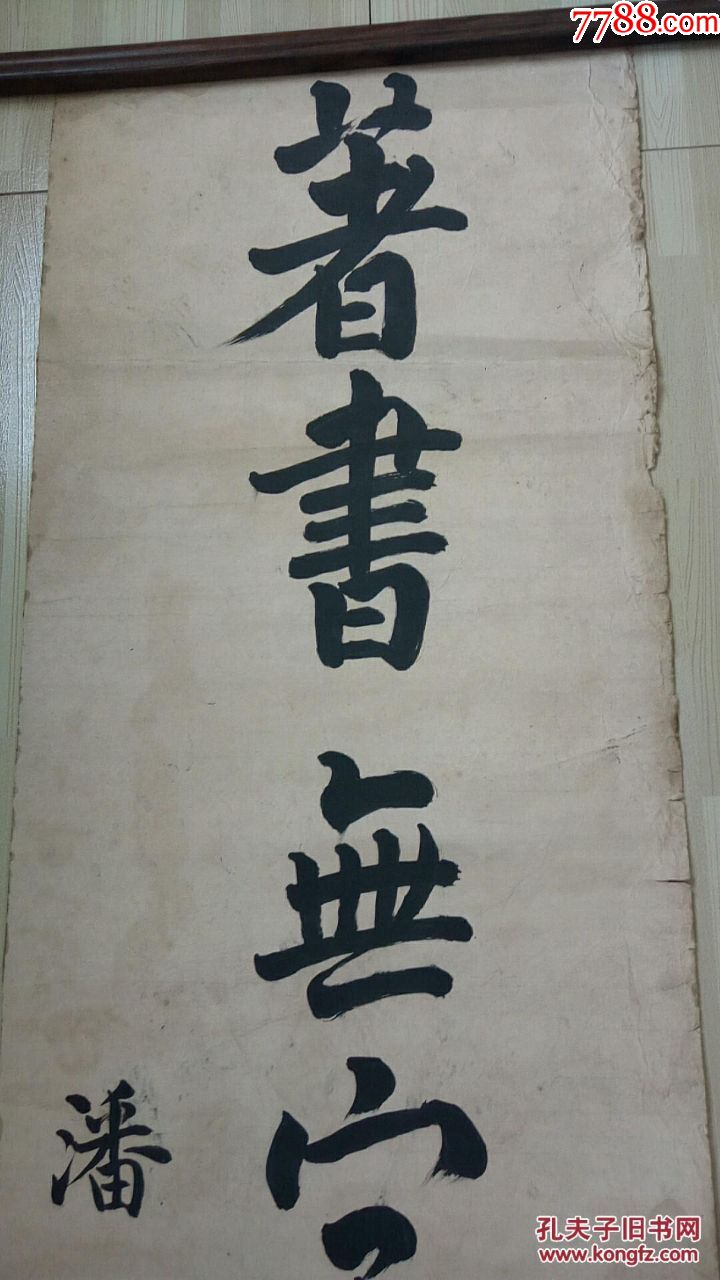 7788.com
著書無
潘
孔夫子旧书网
www.kongfz.com